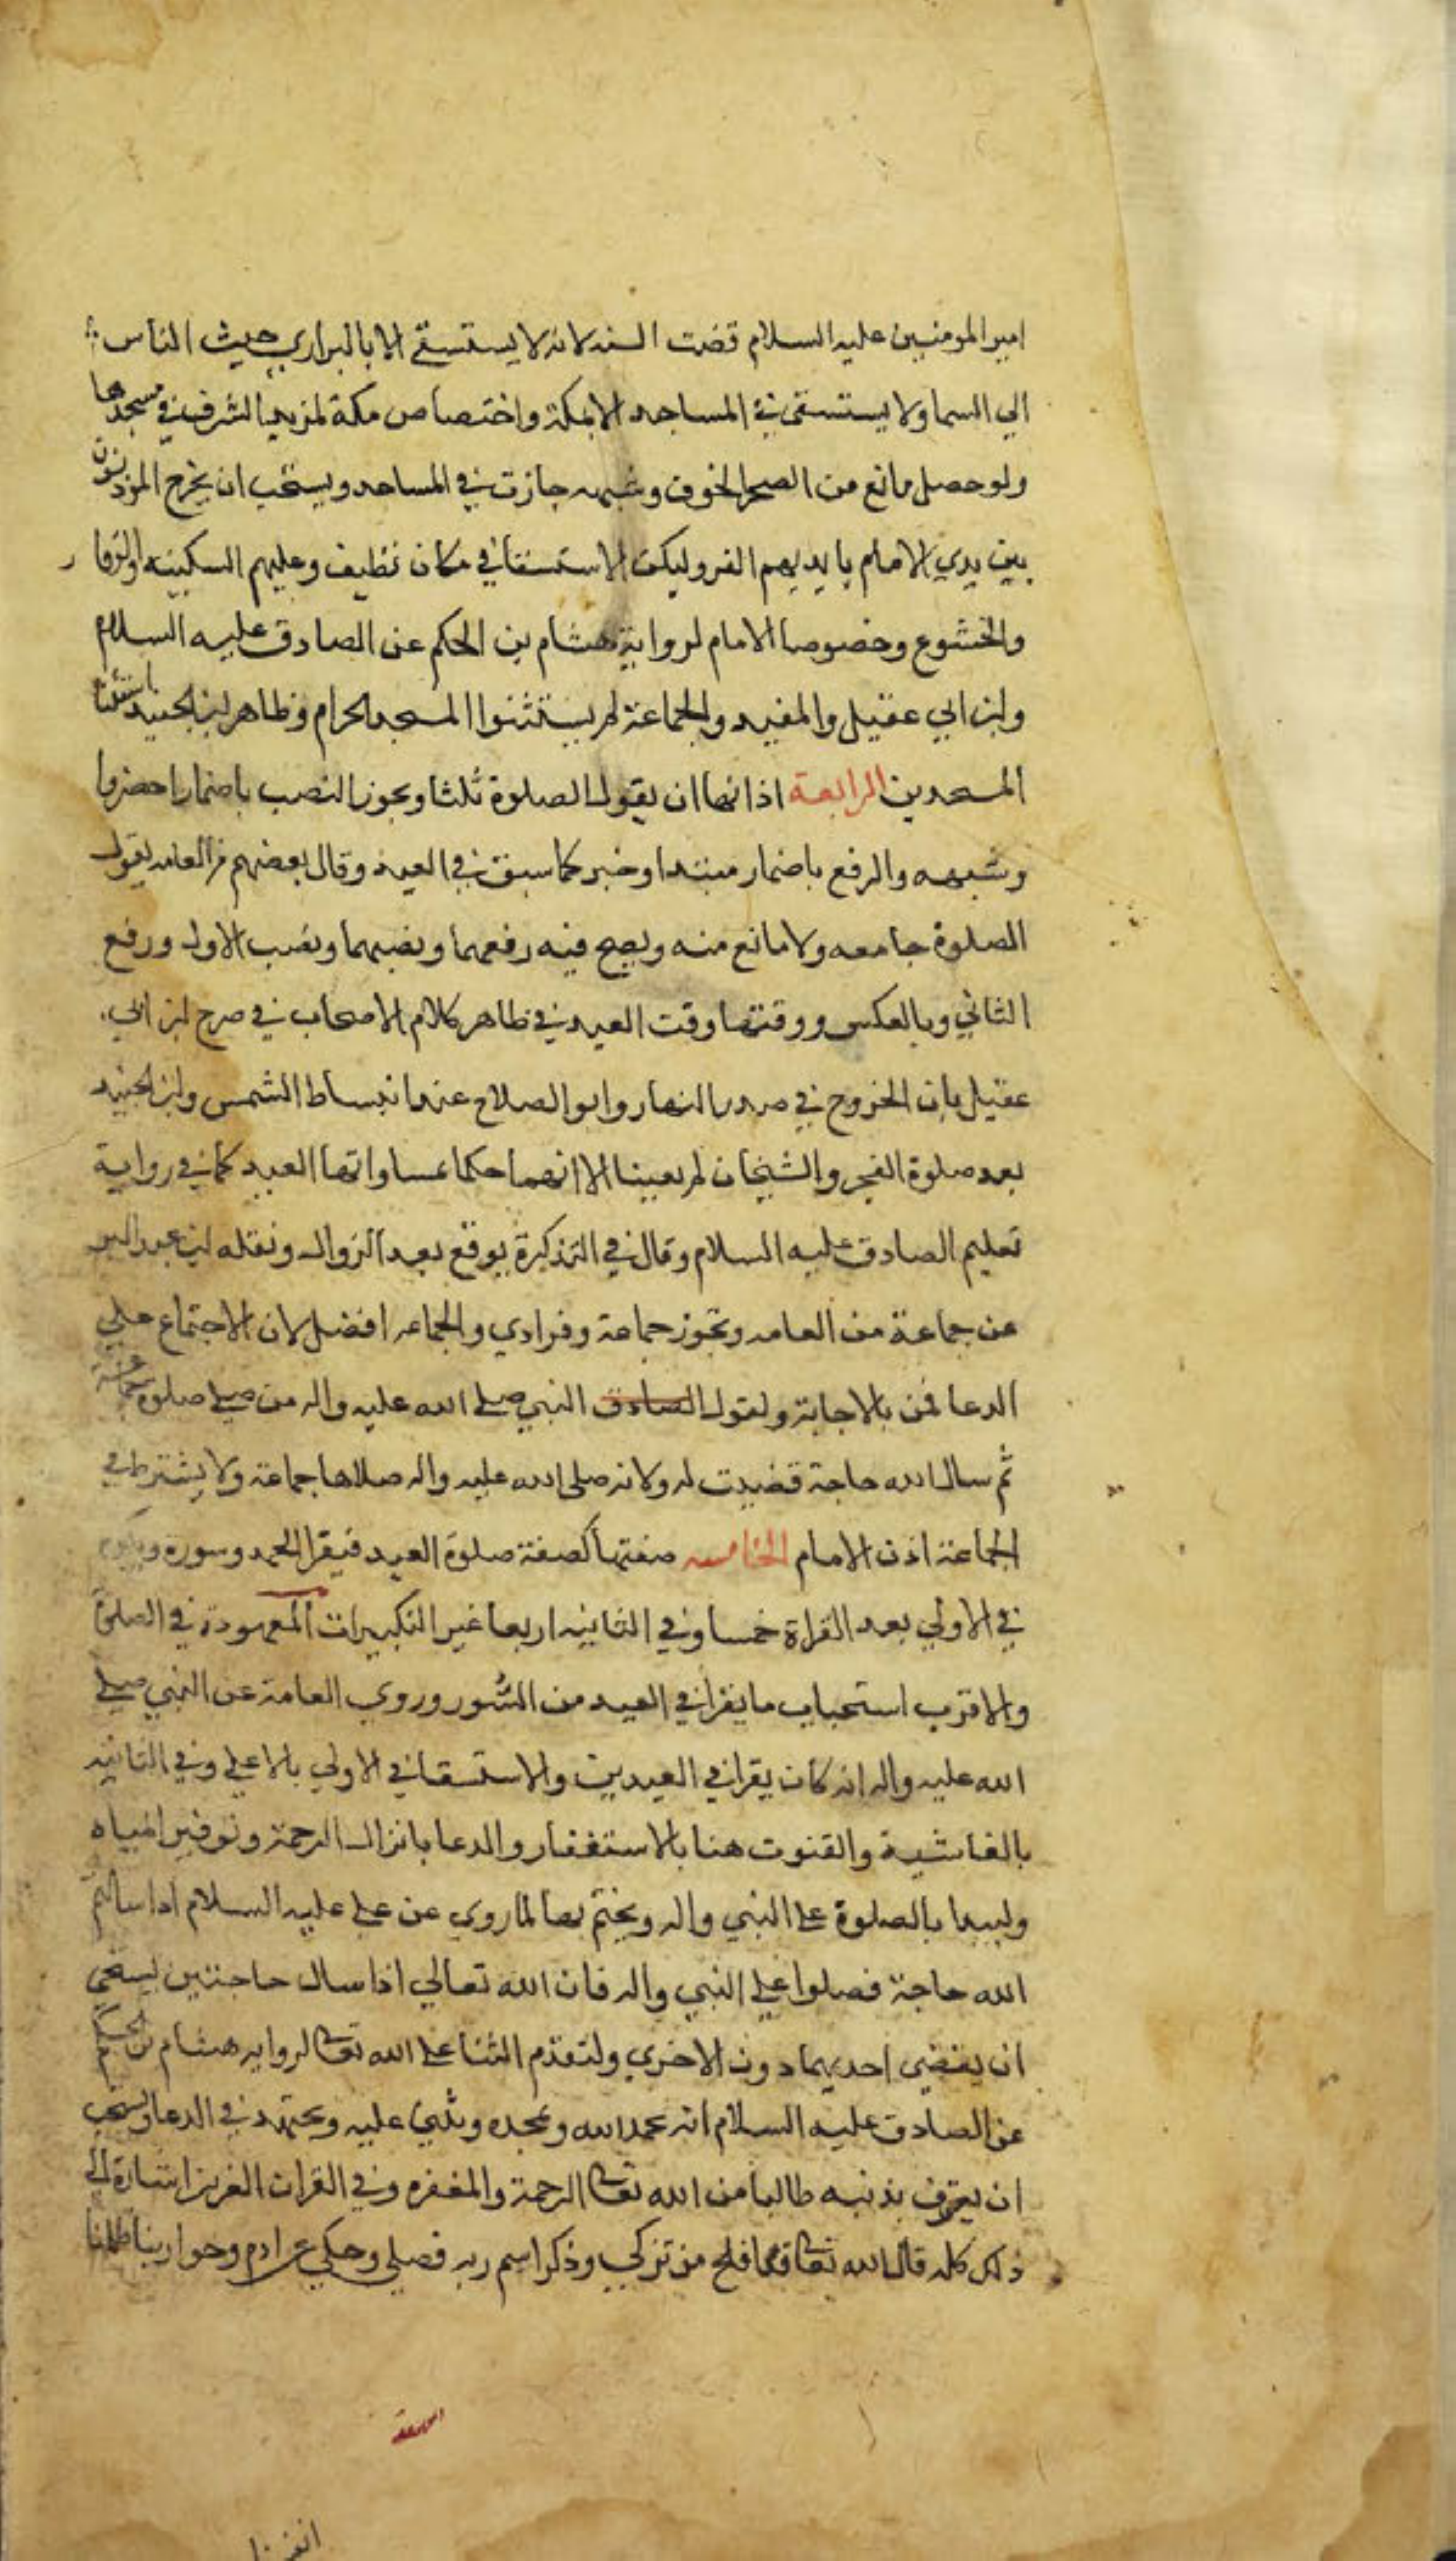 امير المومنين عليه السلام قضت السنه لانه لا يستسقي الا بالبراري حيث الناس
الي السما ولا يستسقي في المساجد الا بمكة واختصاص مكة لمزيد الشرف في مسجدها
ولو حصل مانع من الصحرا لخوف وشبهه جازت في المساجد ويستحب ان يخرج الموذنون
بين يدي الامام بايديهم العنز وليكن الاستسقا في مكان نظيف وعليهم السكينه والوقار
والخشوع وخصوصا الامام لرواية هشام بن الحكم عن الصادق عليه السلام
وابن ابي عقيل والمفيد والجماعة لم يستثنوا المسجد الحرام وظاهر ابن الجنيد استثنا
المسجدين الرابعة اذانها ان يقول الصلوة ثلثا ويجوز النصب باضمار احضروا
وشبهه والرفع باضمار مبتدا وخبر كما سبق في العيد وقال بعضهم من العامه يقول
الصلوة جامعه ولا مانع منه ويصح فيه رفعهما ونصبهما ونصب الاول ورفع
الثاني وبالعكس ووقتها وقت العيد في ظاهر كلام الاصحاب في صرح ابن ابي
عقيل بان الخروج في صدر النهار وابو الصلاح عند انبساط الشمس وابن الجنيد
بعد صلوة الفجر والشيخان لم يعينا الا انهما حكما بمساواتها العيد كما في رواية
تعليم الصادق عليه السلام وقال في التذكرة يوقع بعد الزوال ونقله ابن عبد البر
عن جماعة من العامه وتجوز جماعة وفرادي والجماعه افضل لان الاجتماع علي
الدعا قمن بالاجابة ولقول الصادق النبي صلى الله عليه واله من صلى صلوة
ثم سال الله حاجة قضيت له ولانه صلى الله عليه واله صلاها جماعة ولا يشترط في
الجماعة اذن الامام الخامسه صفتها كصفة صلوة العيد فيقرا الحمد وسوره ويكبر
في الاولي بعد القراة خمسا وفي الثانيه اربعا غير التكبيرات المعهودة في الصلوة
والاقرب استحباب ما يقرا في العيد من السور وروي العامة عن النبي صلى
الله عليه واله انه كان يقرا في العيدين والاستسقا في الاولي بالاعلى وفي الثانيه
بالغاشية والقنوت هنا بالاستغفار والدعا بانزال الرحمة وتوفير المياه
وليبدا بالصلوة على النبي واله ويختم بها لما روي عن علي عليه السلام اذا سالتم
الله حاجة فصلوا على النبي واله فان الله تعالي اذا سال حاجتين يستحي
ان يقضي احديهما دون الاخري ولتقدم الثنا على الله تعالى لروايه هشام بن الحكم
عن الصادق عليه السلام انه يحمد الله ويمجده ويثني عليه ويجتهد في الدعا ويستحب
ان يعترف بذنبه طالبا من الله تعالى الرحمة والمغفره وفي القران العزيز اشارة الى
ذلك كله قال الله تعالى قد افلح من تزكي وذكر اسم ربه فصلي وحكي عن ادم وحوا ربنا ظلمنا
انفسنا